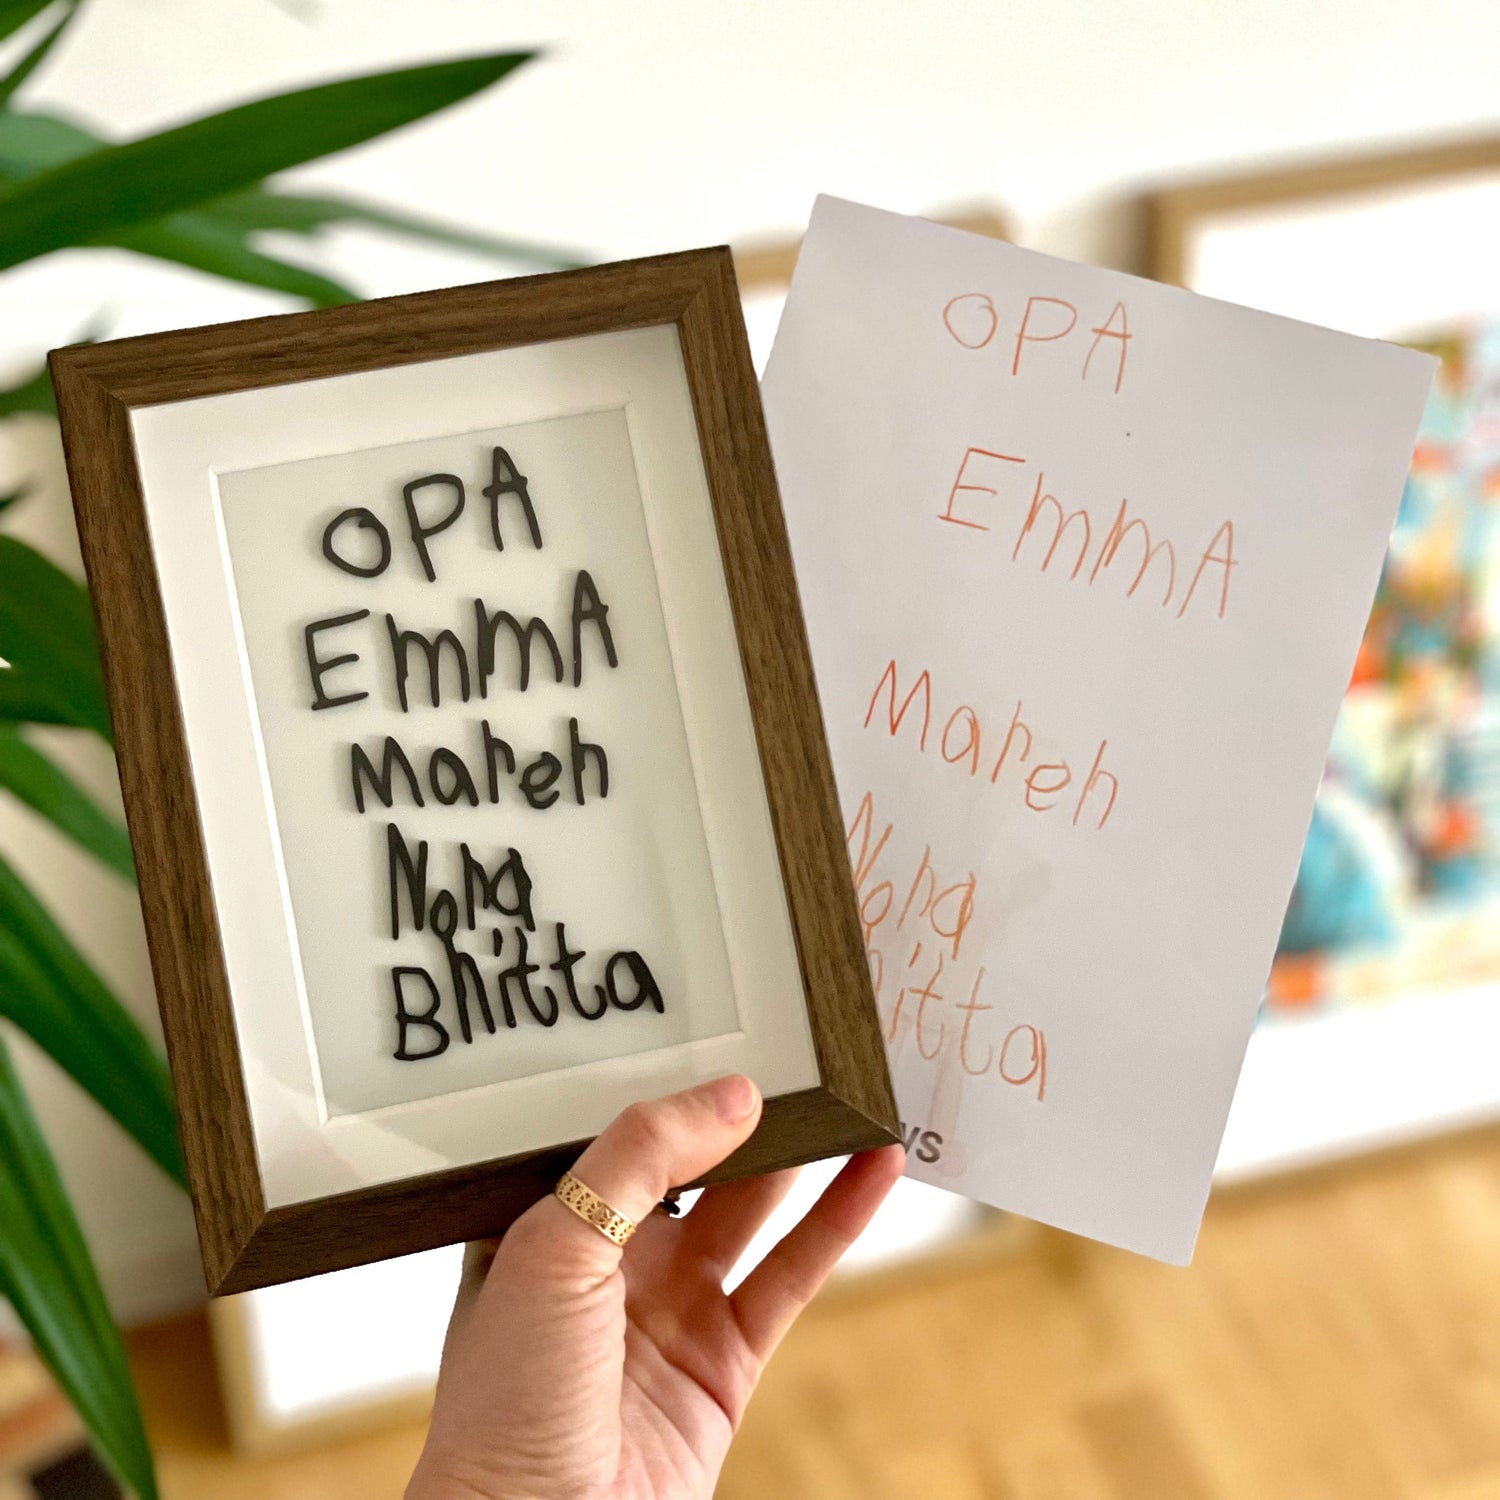 OPA
EmmA
Mareh
Nora
Bhitta
OPA
EmmA
Mareh
Nora
hitta